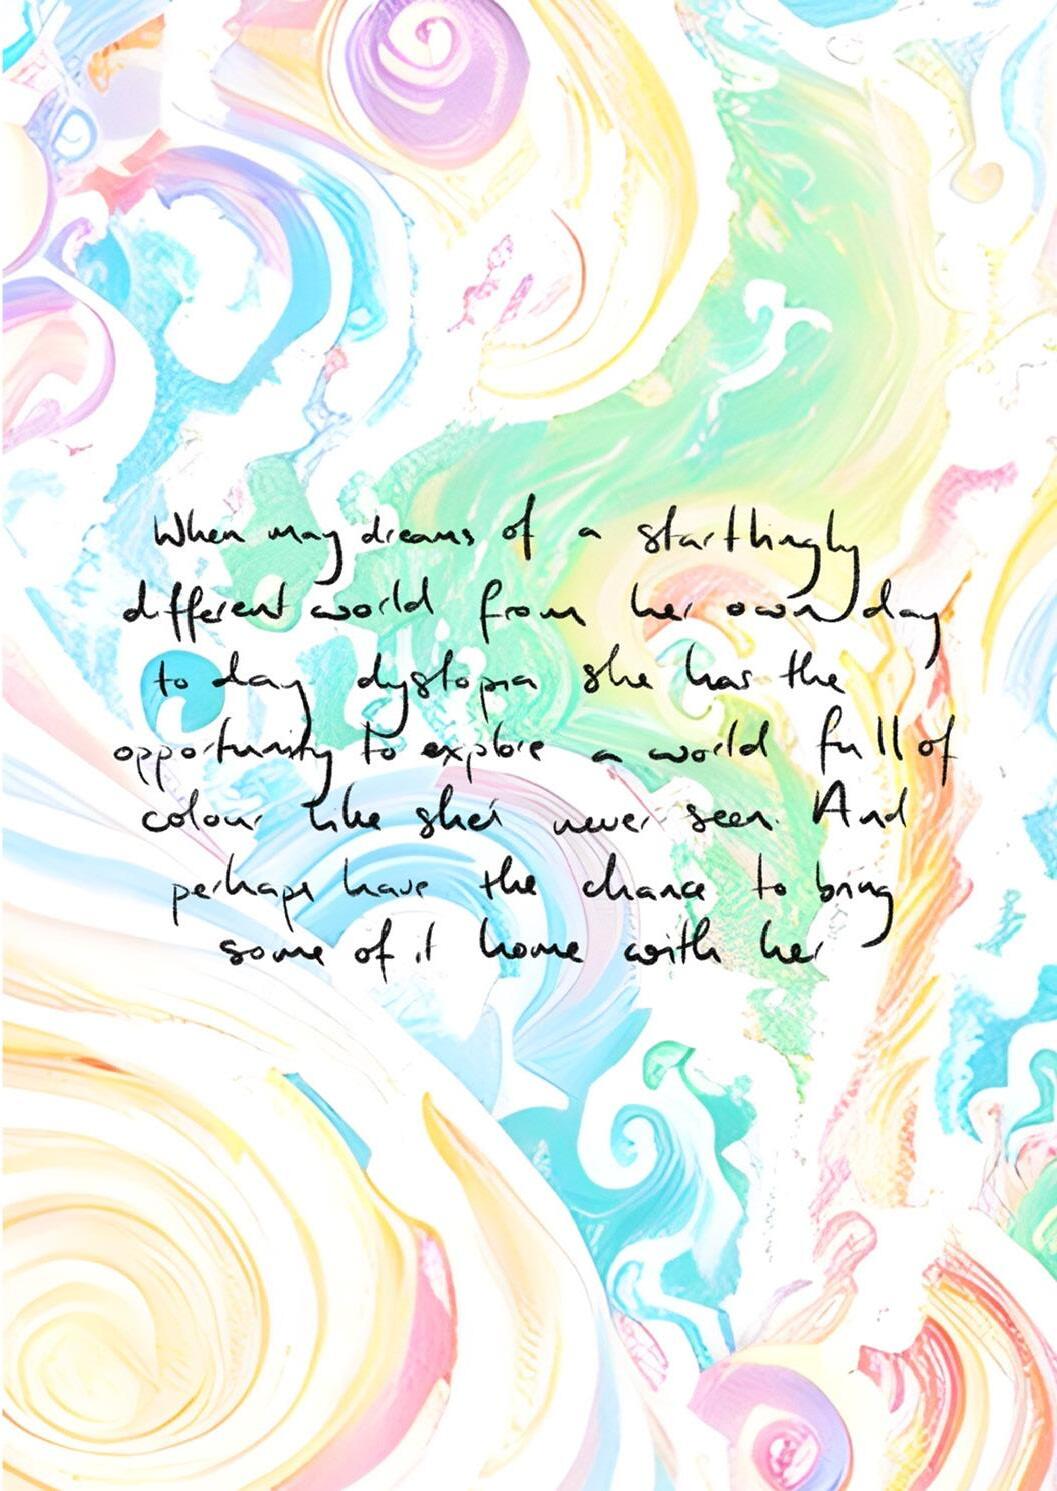 When may dreams of a startlingly
different world from her own day
to day dystopia she has the
opportunity to explore a world full of
colour like she's never seen. And
perhaps have the chance to bring
some of it home with her